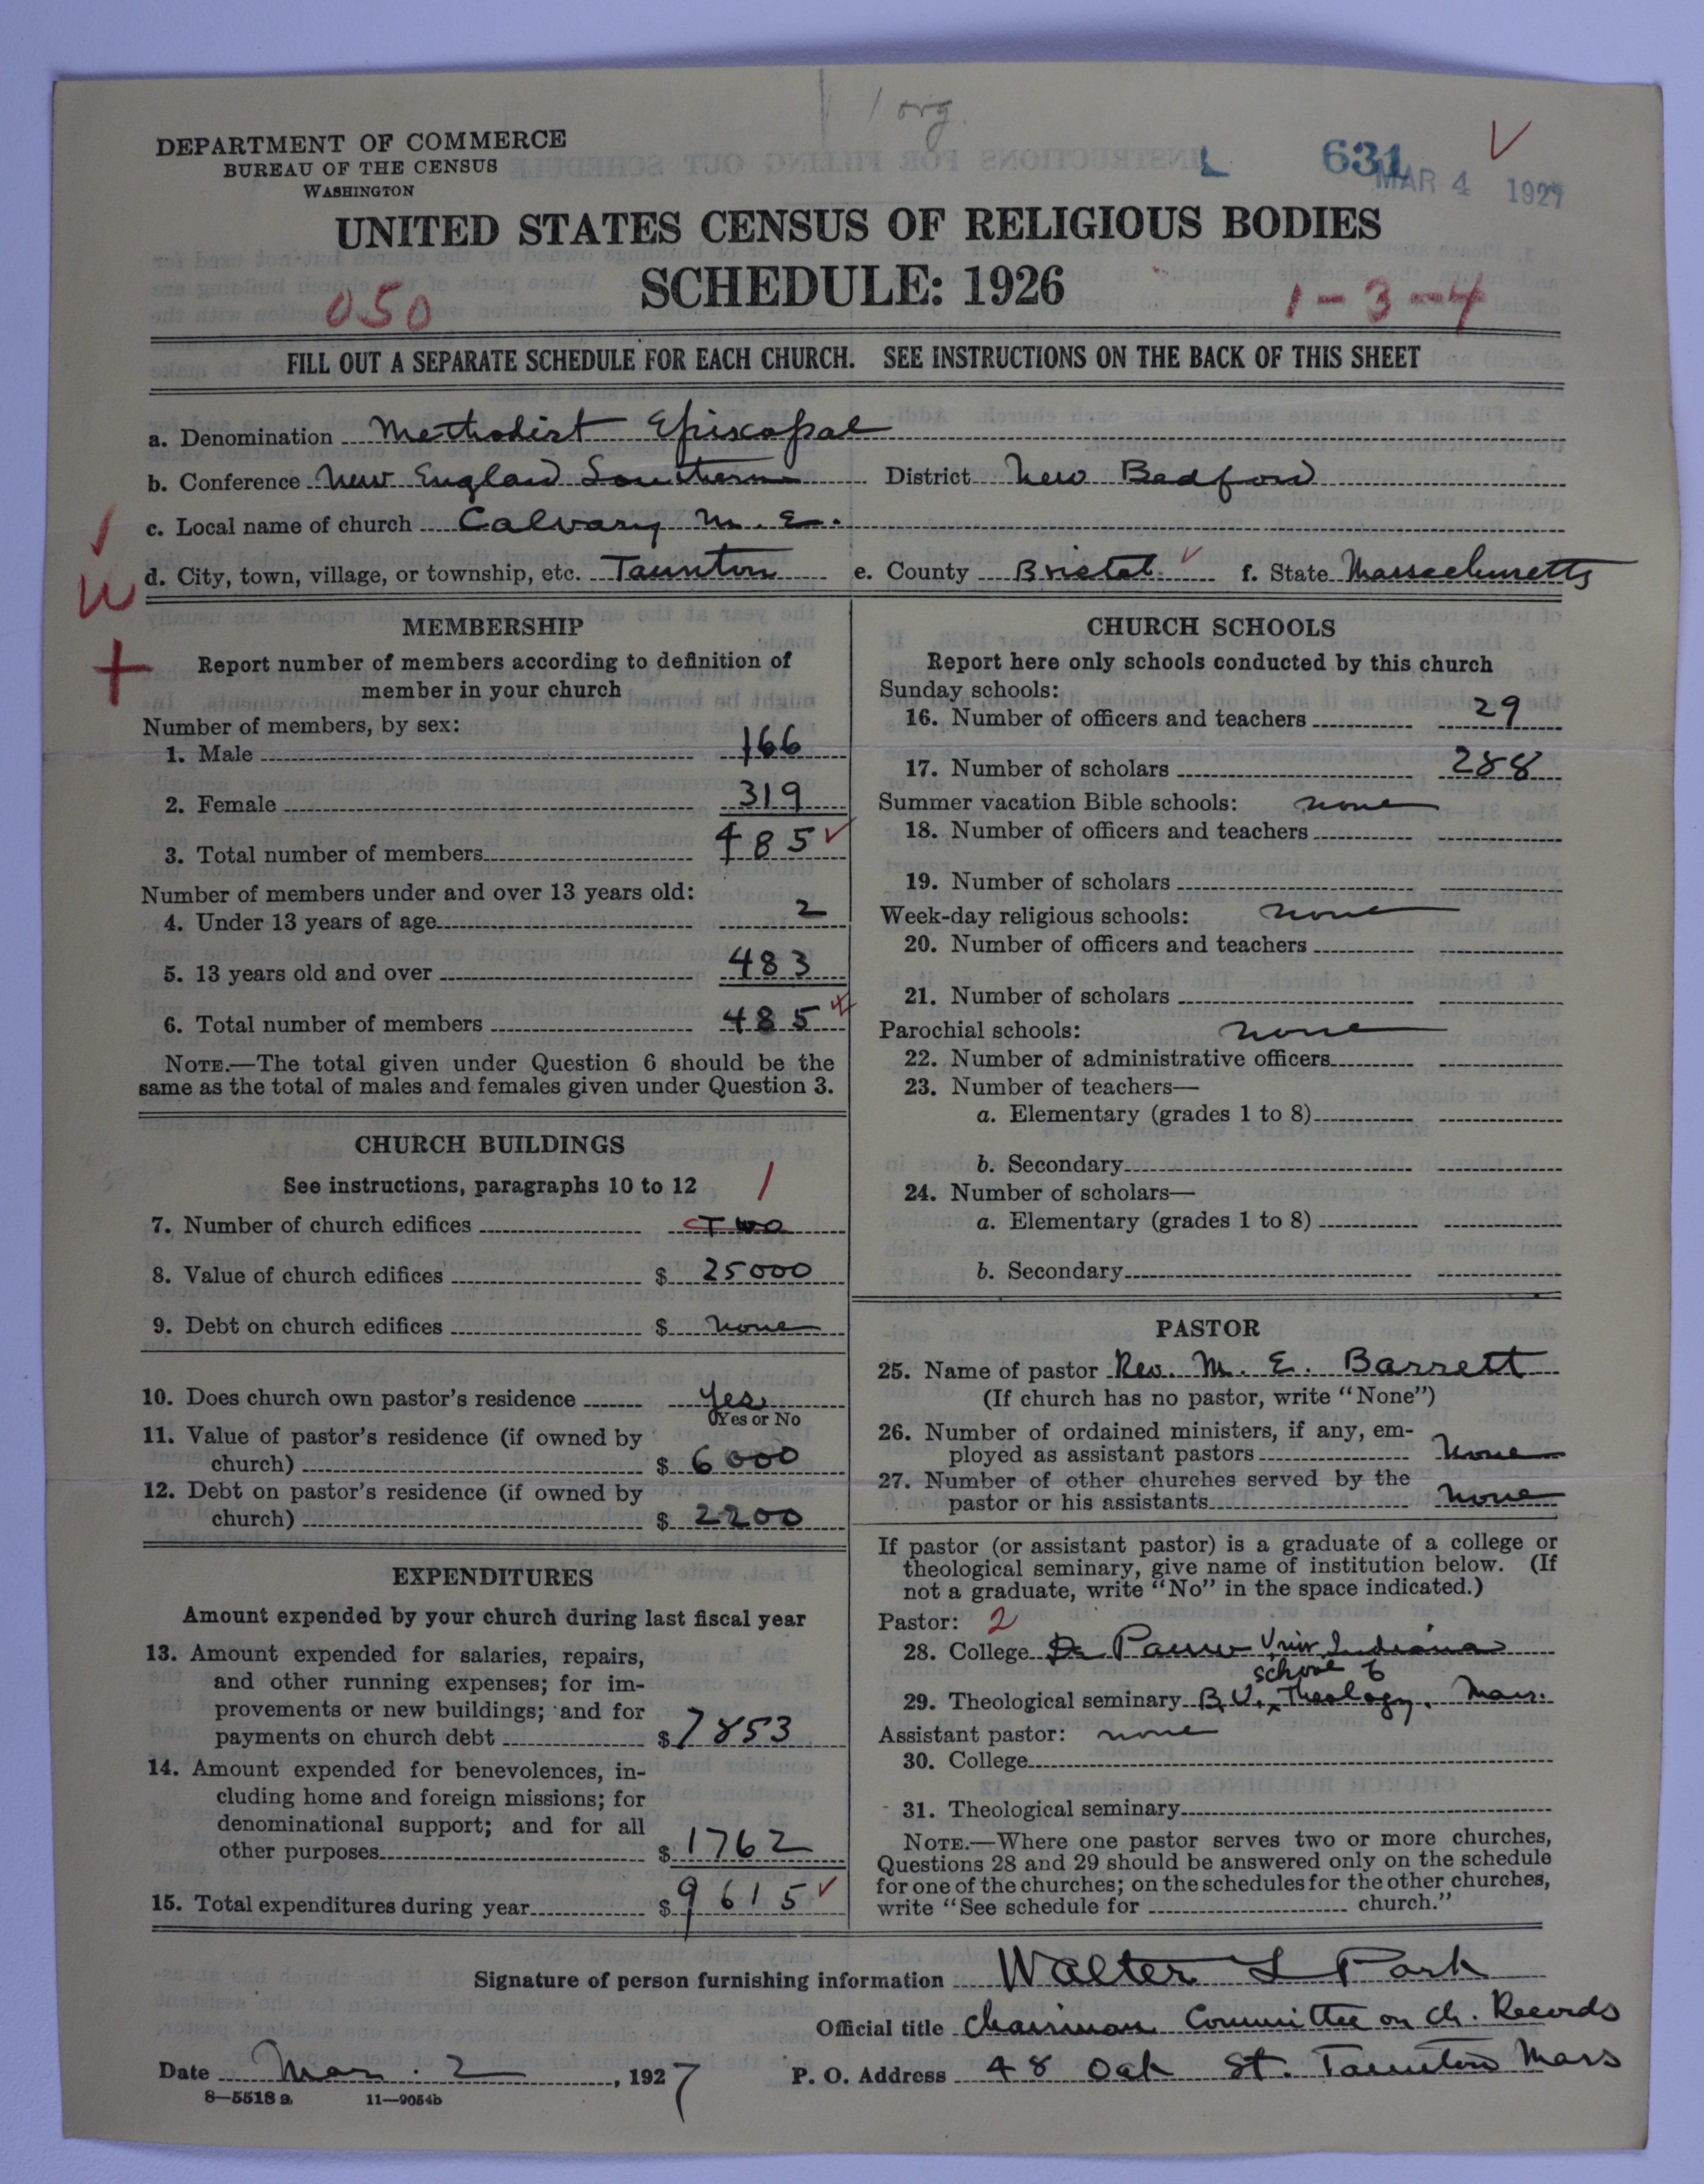 1 org.
DEPARTMENT OF COMMERCE
BUREAU OF THE CENSUS
WASHINGTON
L 631 MAR 4 1927
UNITED STATES CENSUS OF RELIGIOUS BODIES
SCHEDULE: 1926
050 1-3-4
FILL OUT A SEPARATE SCHEDULE FOR EACH CHURCH. SEE INSTRUCTIONS ON THE BACK OF THIS SHEET
a. Denomination Methodist Episcopal
b. Conference New England Southern District New Bedford
c. Local name of church Calvary M. E.
d. City, town, village, or township, etc. Taunton e. County Bristol f. State Massachusetts
MEMBERSHIP
Report number of members according to definition of
member in your church
Number of members, by sex:
1. Male 166
2. Female 319
3. Total number of members 485
Number of members under and over 13 years old:
4. Under 13 years of age 2
5. 13 years old and over 483
6. Total number of members 485
NOTE.—The total given under Question 6 should be the
same as the total of males and females given under Question 3.
CHURCH BUILDINGS
See instructions, paragraphs 10 to 12 1
7. Number of church edifices Two
8. Value of church edifices $ 25000
9. Debt on church edifices $ none
10. Does church own pastor's residence Yes
Yes or No
11. Value of pastor's residence (if owned by
church) $ 6000
12. Debt on pastor's residence (if owned by
church) $ 2200
EXPENDITURES
Amount expended by your church during last fiscal year
13. Amount expended for salaries, repairs,
and other running expenses; for im-
provements or new buildings; and for
payments on church debt $ 7853
14. Amount expended for benevolences, in-
cluding home and foreign missions; for
denominational support; and for all
other purposes $ 1762
15. Total expenditures during year $ 9615
CHURCH SCHOOLS
Report here only schools conducted by this church
Sunday schools:
16. Number of officers and teachers 29
17. Number of scholars 288
Summer vacation Bible schools: none
18. Number of officers and teachers
19. Number of scholars
Week-day religious schools: none
20. Number of officers and teachers
21. Number of scholars
Parochial schools: none
22. Number of administrative officers
23. Number of teachers—
a. Elementary (grades 1 to 8)
b. Secondary
24. Number of scholars—
a. Elementary (grades 1 to 8)
b. Secondary
PASTOR
25. Name of pastor Rev. M. E. Barrett
(If church has no pastor, write "None")
26. Number of ordained ministers, if any, em-
ployed as assistant pastors None
27. Number of other churches served by the
pastor or his assistants None
If pastor (or assistant pastor) is a graduate of a college or
theological seminary, give name of institution below. (If
not a graduate, write "No" in the space indicated.)
Pastor: 2
28. College De Pauw Univ. Indiana
29. Theological seminary B. U. School of Theology. Mass.
Assistant pastor: none
30. College
31. Theological seminary
NOTE.—Where one pastor serves two or more churches,
Questions 28 and 29 should be answered only on the schedule
for one of the churches; on the schedules for the other churches,
write "See schedule for church."
Signature of person furnishing information Walter L Park
Official title Chairman Committee on Ch. Records
Date Mar. 2, 1927 P. O. Address 48 Oak St. Taunton Mass
8—5518 a 11—9054b